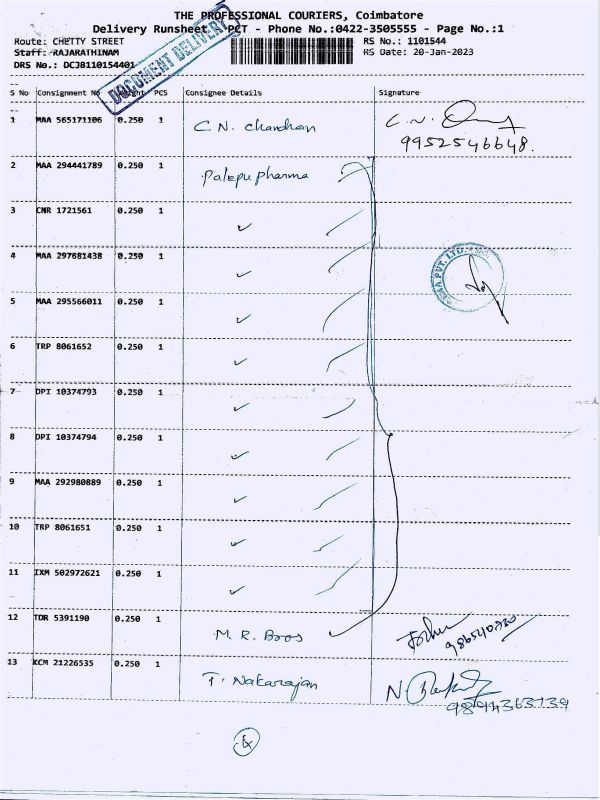 THE PROFESSIONAL COURIERS, Coimbatore
Delivery Runsheet PCT - Phone No.:0422-3505555 - Page No.:1
Route: CHETTY STREET
RS No.: 1101544
Staff: RAJARATHINAM
RS Date: 20-Jan-2023
DRS No.: DCJB110154401
DOCUMENT DELIVERY
S No Consignment No Weight PCS Consignee Details Signature
1 MAA 565171106 0.250 1 C.N. Chandhan C.N.
9952546648.
2 MAA 294441789 0.250 1 Palepu pharma
3 CNR 1721561 0.250 1 ✓
4 MAA 297681438 0.250 1 ✓
PVT. LTD.
5 MAA 295566011 0.250 1 ✓
6 TRP 8061652 0.250 1 ✓
7 DPI 10374793 0.250 1 ✓
8 DPI 10374794 0.250 1 ✓
9 MAA 292980889 0.250 1 ✓
10 TRP 8061651 0.250 1 ✓
11 IXM 502972621 0.250 1 ✓
12 TDR 5391190 0.250 1 M.R. Bros
13 KCM 21226535 0.250 1 T. Natarajan N.